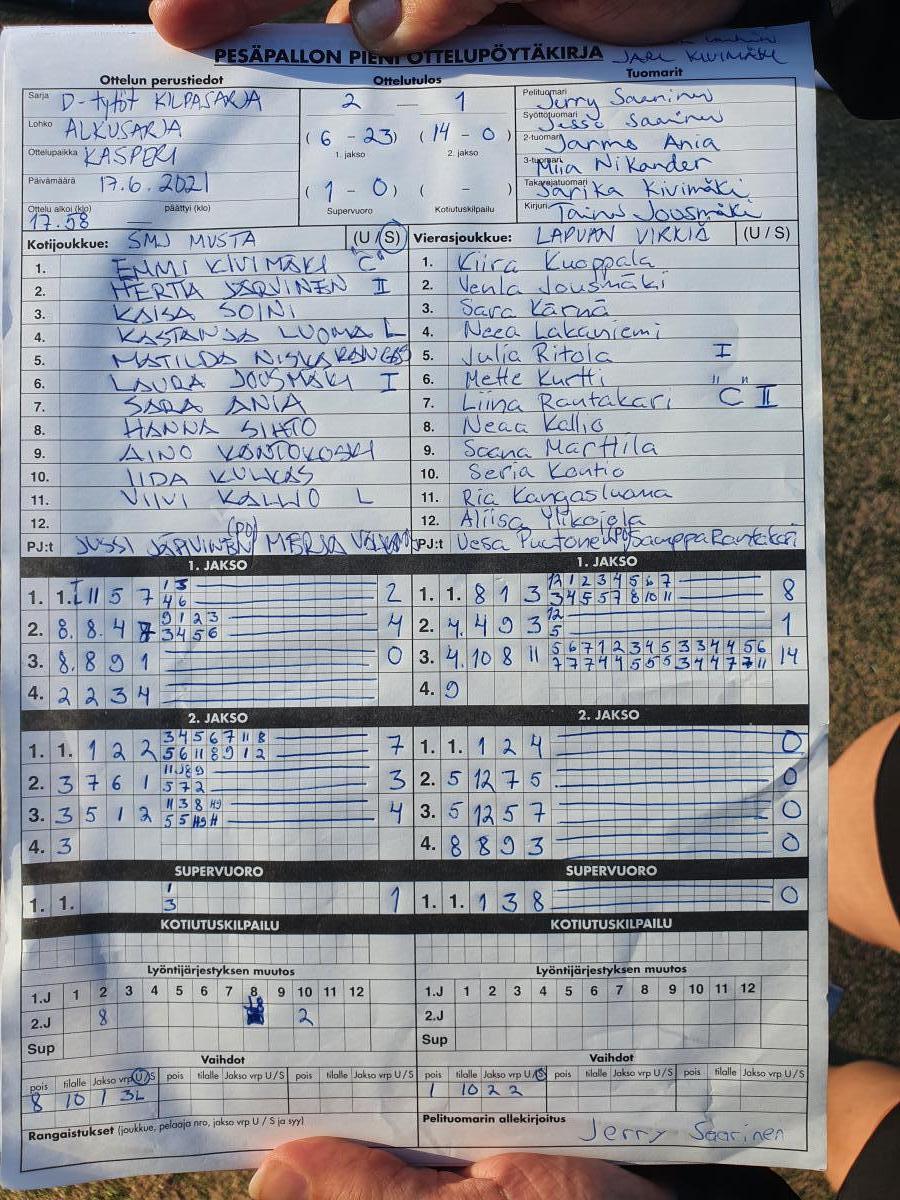 PESÄPALLON PIENI OTTELUPÖYTÄKIRJA JARI KIVIMÄKI
Ottelun perustiedot Ottelutulos Tuomarit
Sarja D-tytöt KILPASARJA 2 — 1 Pelituomari Jerry Saarinen
Lohko ALKUSARJA (6 - 23) (14 - 0) Syöttötuomari Saarinen
1. jakso 2. jakso 2-tuomari Jarmo Ania
Ottelupaikka KASPERI 3-tuomari Miia Nikander
Päivämäärä 17.6.2021 (1 - 0) ( - ) Takarajatuomari Sarika Kivimäki
Ottelu alkoi (klo) 17.58 päättyi (klo) — Supervuoro Kotiutuskilpailu Kirjuri Taina Jousmäki
Kotijoukkue: SMJ MUSTA (U / S) Vierasjoukkue: LAPUAN VIRKIÄ (U / S)
1. EMMI KIVIMÄKI "C" 1. Kiira Kuoppala
2. HERTTA JÄRVINEN II 2. Venla Jousmäki
3. KAISA SOINI 3. Sara Kärnä
4. KASTANJA LUOMA L 4. Neea Lakaniemi
5. MATILDA NISKAKANGAS 5. Julia Ritola I
6. LAURA JOUSMÄKI I 6. Mette Kurtti
7. SARA ANIA 7. Liina Rantakari "C" II
8. HANNA SIHTO 8. Neaa Kallio
9. AINO KONTOKOSKI 9. Saana Marttila
10. IIDA KULKAS 10. Seria Kontio
11. VIIVI KALLIO L 11. Ria Kangasluoma
12. 12. Aliisa Ylikojola
PJ:t JUSSI JÄRVINEN (PJ) MERJA PJ:t Vesa Puotonen (PJ) Samppa Rantakari
1. JAKSO 1. JAKSO
1. 1. 11 5 7 1 3 2 1. 1. 8 1 3 12 1 2 3 4 5 6 7 8
4 6 3 4 5 5 7 8 10 11
2. 8. 8. 4 7 9 1 2 3 4 2. 4. 4 9 3 12 1
3 4 5 6 5
3. 8. 8 9 1 0 3. 4. 10 8 11 5 6 7 1 2 3 4 5 3 3 4 4 5 6 14
7 7 7 4 4 5 5 5 3 4 4 7 7 11
4. 2 2 3 4 4. 9
2. JAKSO 2. JAKSO
1. 1. 1 2 2 3 4 5 6 7 11 8 7 1. 1. 1 2 4 0
5 6 11 8 9 1 2
2. 3 7 6 1 11 J8 9 3 2. 5 12 7 5 0
5 7 2
3. 3 5 1 2 11 3 8 H9 4 3. 5 12 5 7 0
5 5 H9 H
4. 3 4. 8 8 9 3 0
SUPERVUORO SUPERVUORO
1. 1. 1 1 1. 1. 1 3 8 0
3
KOTIUTUSKILPAILU KOTIUTUSKILPAILU
Lyöntijärjestyksen muutos Lyöntijärjestyksen muutos
1.J 1 2 3 4 5 6 7 8 9 10 11 12 1.J 1 2 3 4 5 6 7 8 9 10 11 12
2.J 8 J8 2 2.J
Sup Sup
Vaihdot Vaihdot
pois tilalle Jakso vrp U/S pois tilalle Jakso vrp U/S pois tilalle Jakso vrp U/S pois tilalle Jakso vrp U/S pois tilalle Jakso vrp U/S pois tilalle Jakso vrp U/S
8 10 1 3L 1 10 2 2
Rangaistukset (joukkue, pelaaja nro, jakso vrp U / S ja syy) Pelituomarin allekirjoitus
Jerry Saarinen